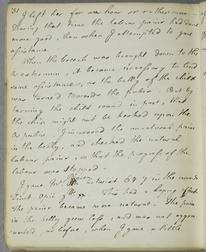 31 I left her for an hour or rather more.
During that time the labour pains had done
more good, than when I attempted to give
assistance.
When the breech was brought down to the
it became necessary to lend
some assistance, as the belly of the child
was turned towards the pubis. But by
turning the child round in part, that
the chin might not be hooked upon the
pubis, I increased the unnatural pains
in the belly, and checked the natural
labour pains, so that the progress of the
labour was stopped.
I gave
She had a
The pains became more natural. The pain
in the belly grew less, and was not
as before, when I gave a little